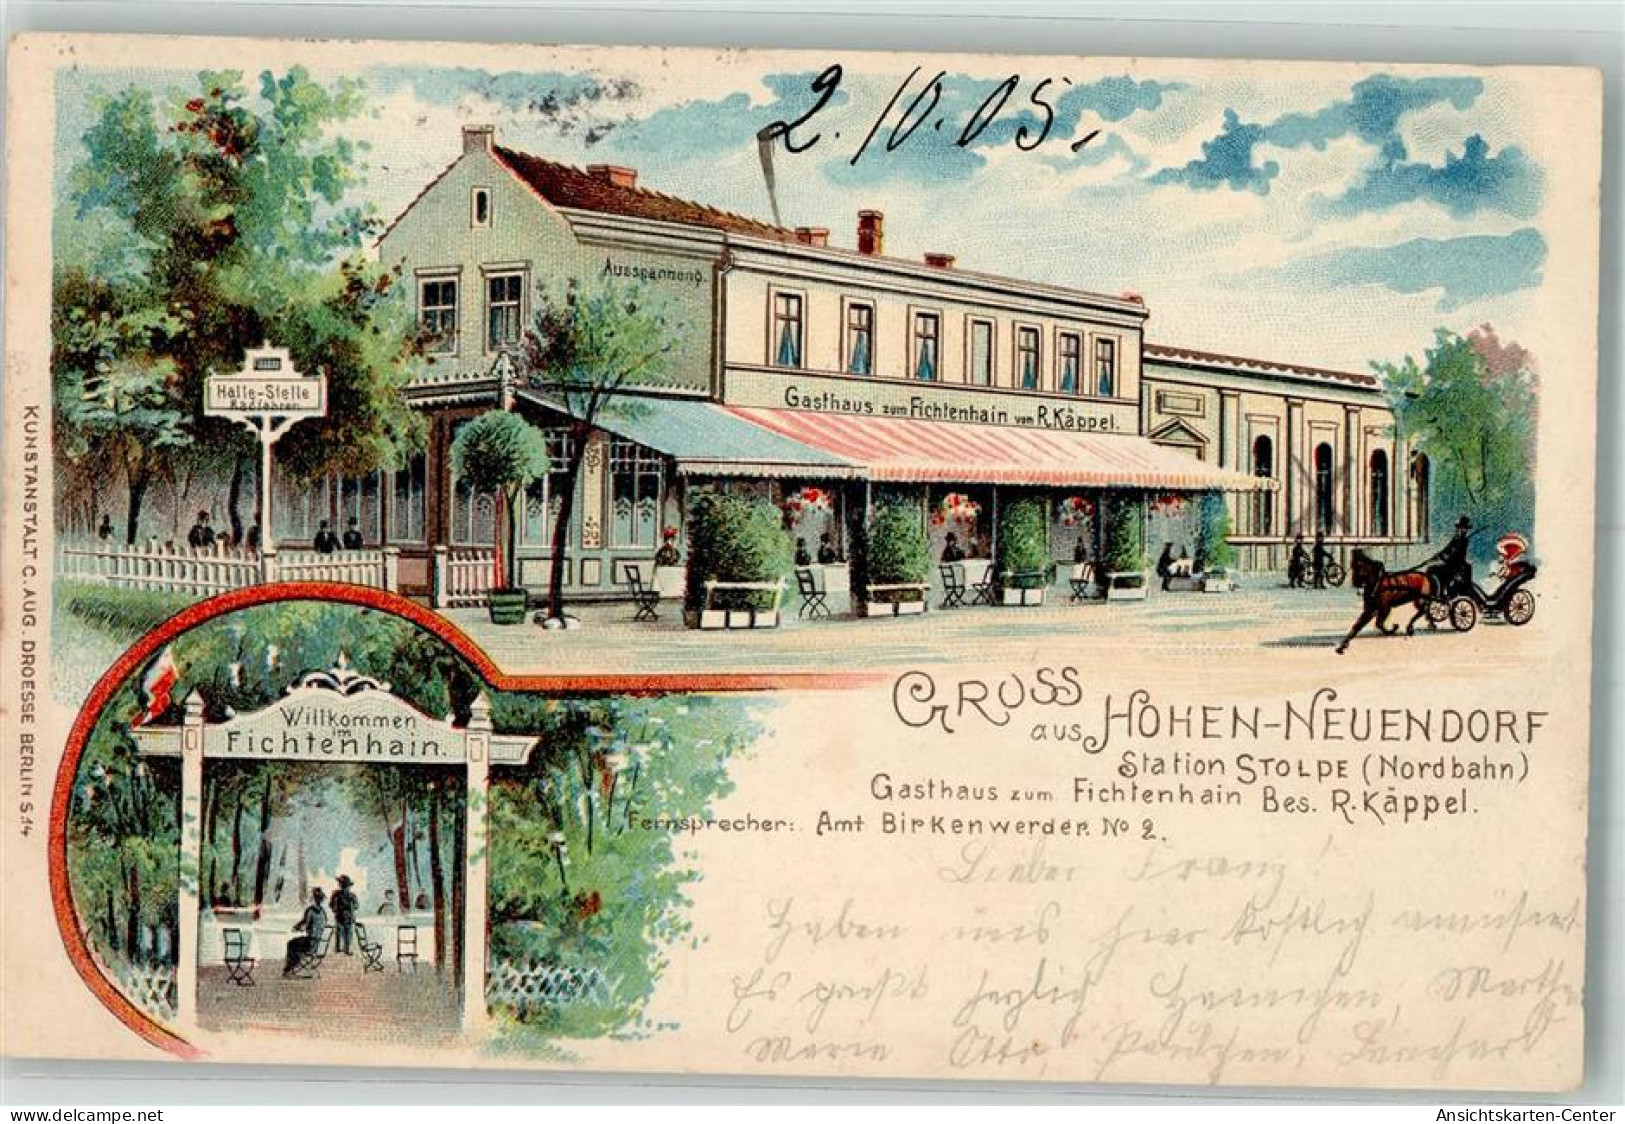 2.10.05.
Ausspannung.
Halte-Stelle
Radfahrer
Gasthaus zum Fichtenhain von R. Käppel.
KUNSTANSTALT C. AUG. DROESSE BERLIN S.14
Willkommen
im
Fichtenhain.
GRUSS
aus HOHEN-NEUENDORF
Station STOLPE (Nordbahn)
Gasthaus zum Fichtenhain Bes. R. Käppel.
Fernsprecher: Amt Birkenwerder. No 2.
Lieber Franz!
Haben uns hier köstlich amüsirt
Es grüßt herzlich Martha
Marie Otto, Paulchen,
Ansichtskarten-Center